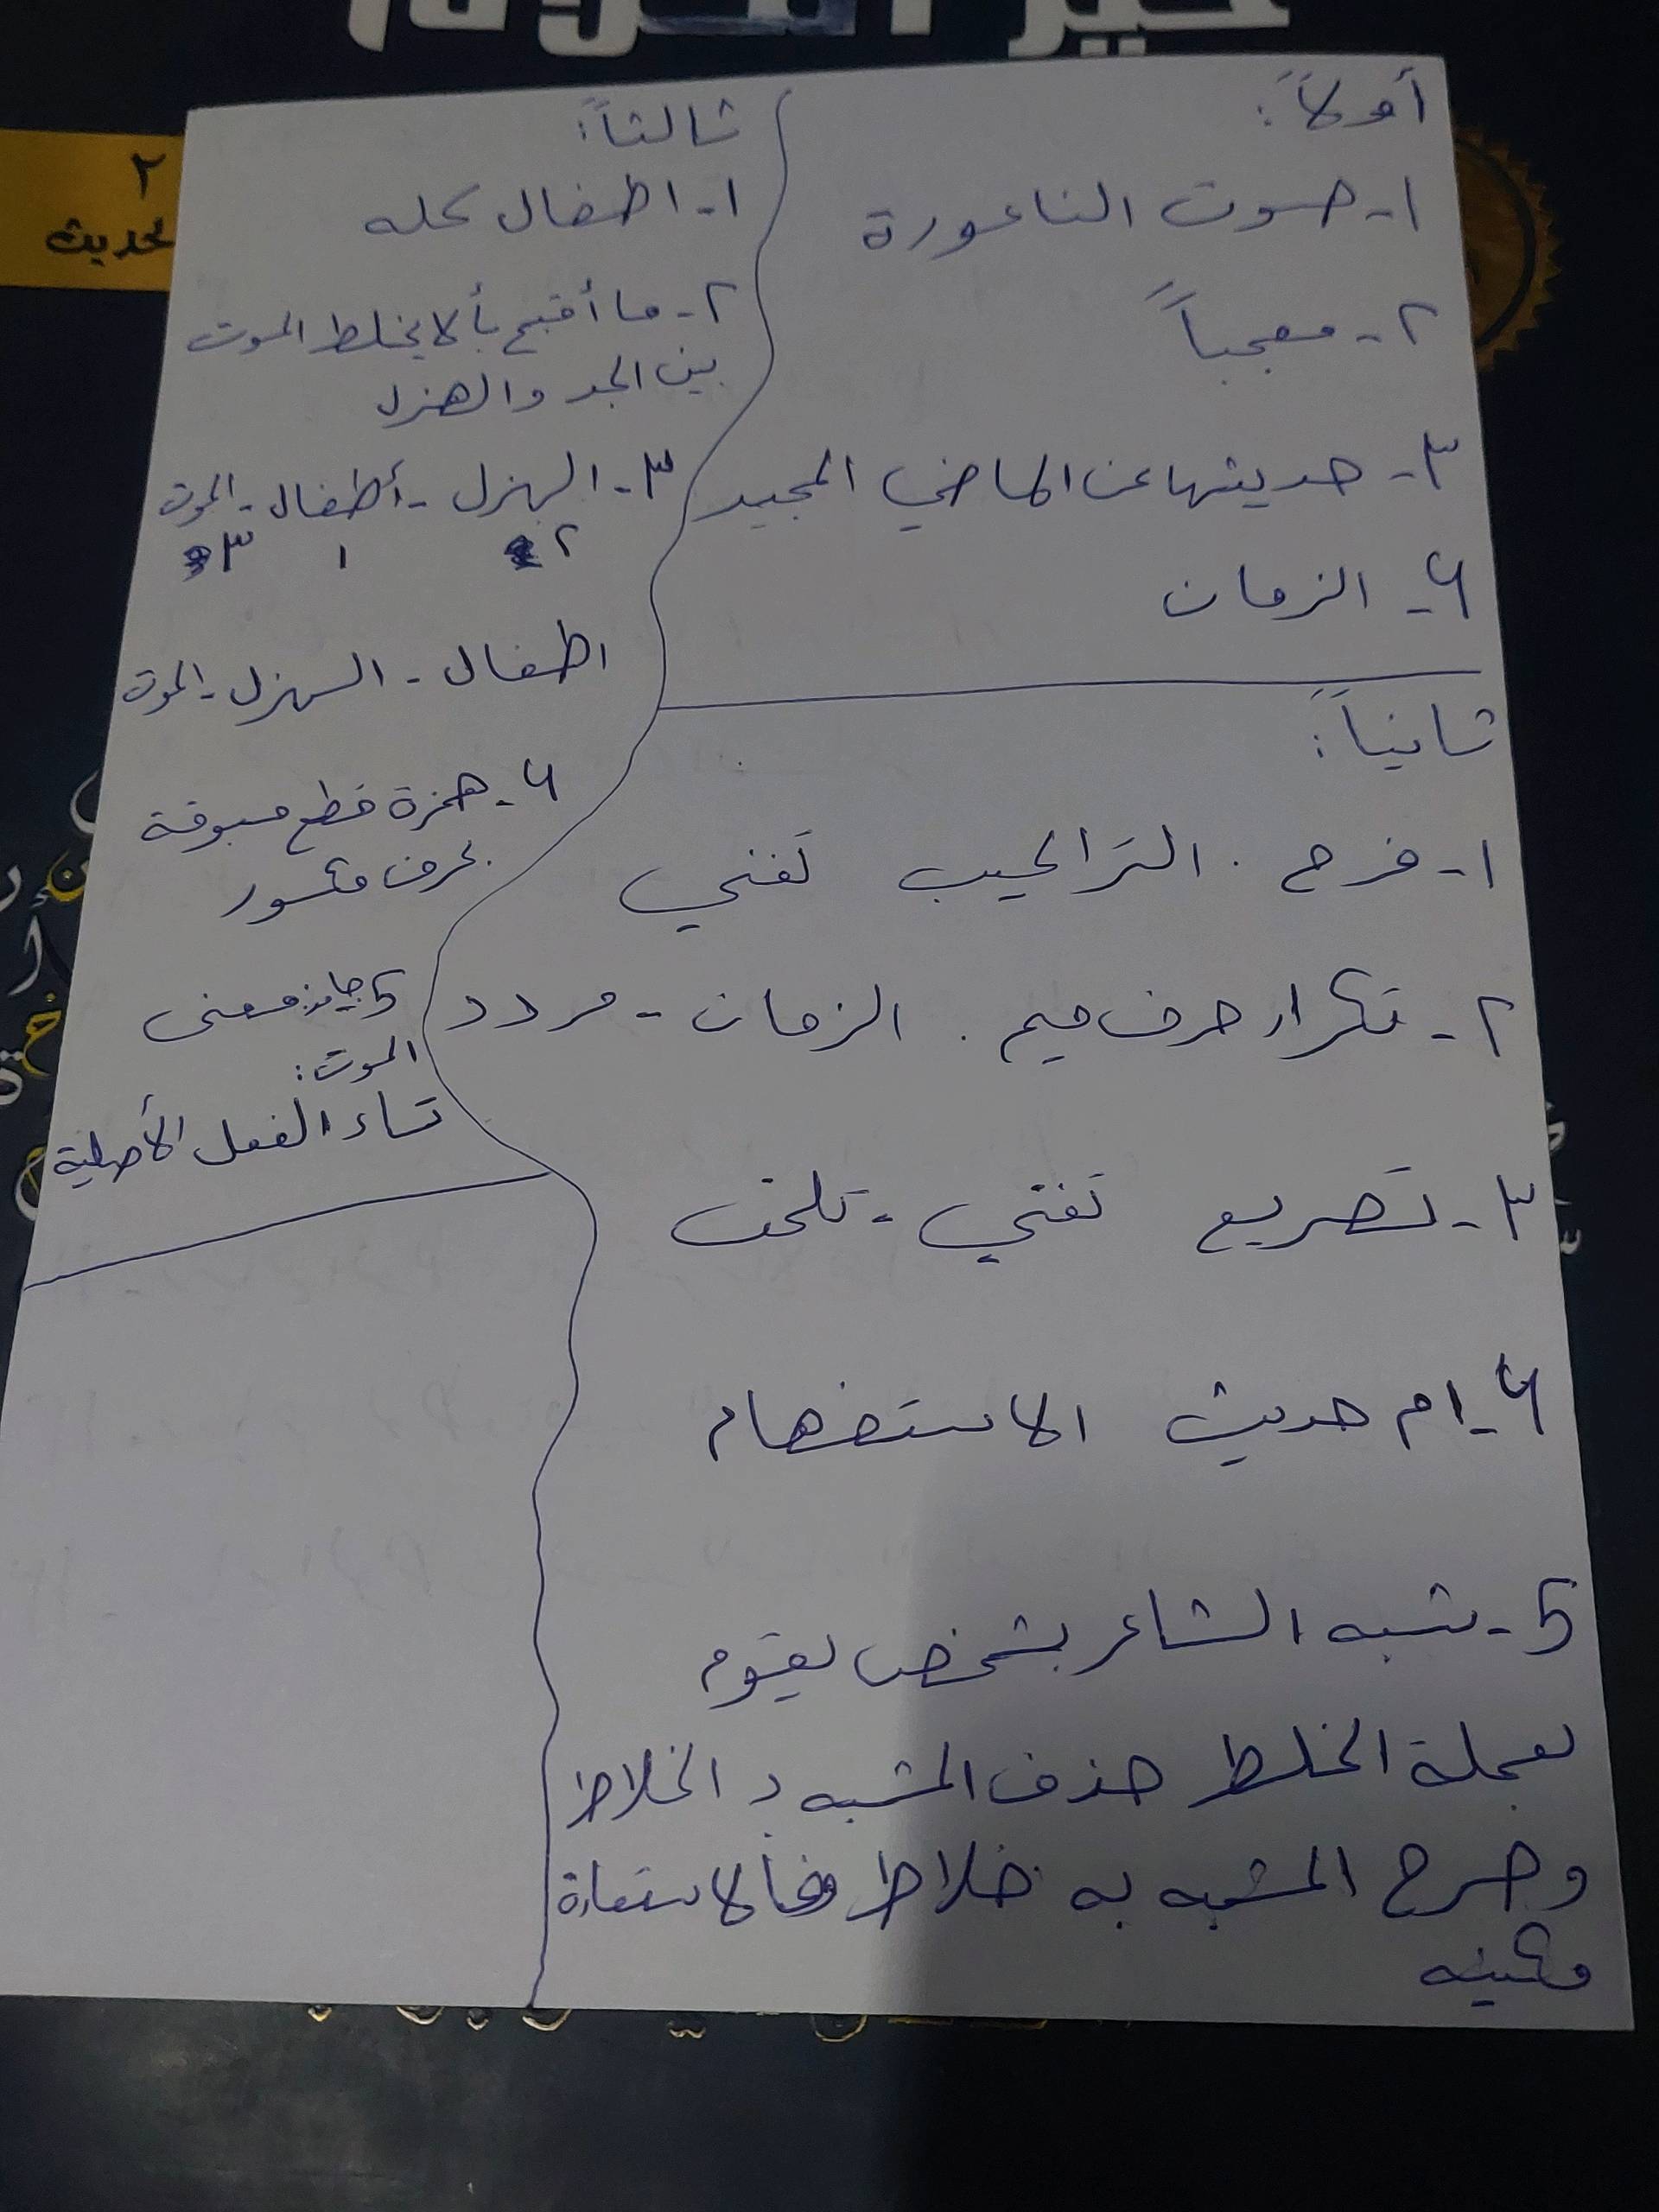 أولاً:
١- صوت الناعورة
٢- معجباً
٣- حديثها عن الماضي المجيد
٤- الزمان
ثانياً:
١- فرح . التراكيب تغني
٢- تكرار حرف ميم . الزمان - مردد
٣- تصريع تغني - تلحن
٤- ام حديث الاستفهام
5- شبه الشاعر بشخص يقوم
بعملة الخلط حذف المشبه د الخلاط
وصرح المشبه به خلاط فالاستعارة
مكنيه
ثالثاً:
١- اطفال كله
٢- ما أقبح بألا يخلط الموت
بين الجد والهزل
٣- الهزل - أطفال - الموت
٢ ١ ٣
اطفال - الهزل - الموت
٤- همزة قطع مسبوقة
بحرف مكسور
5 معنى
الموت:
تاء الفعل الأصلية
٢
لحديث